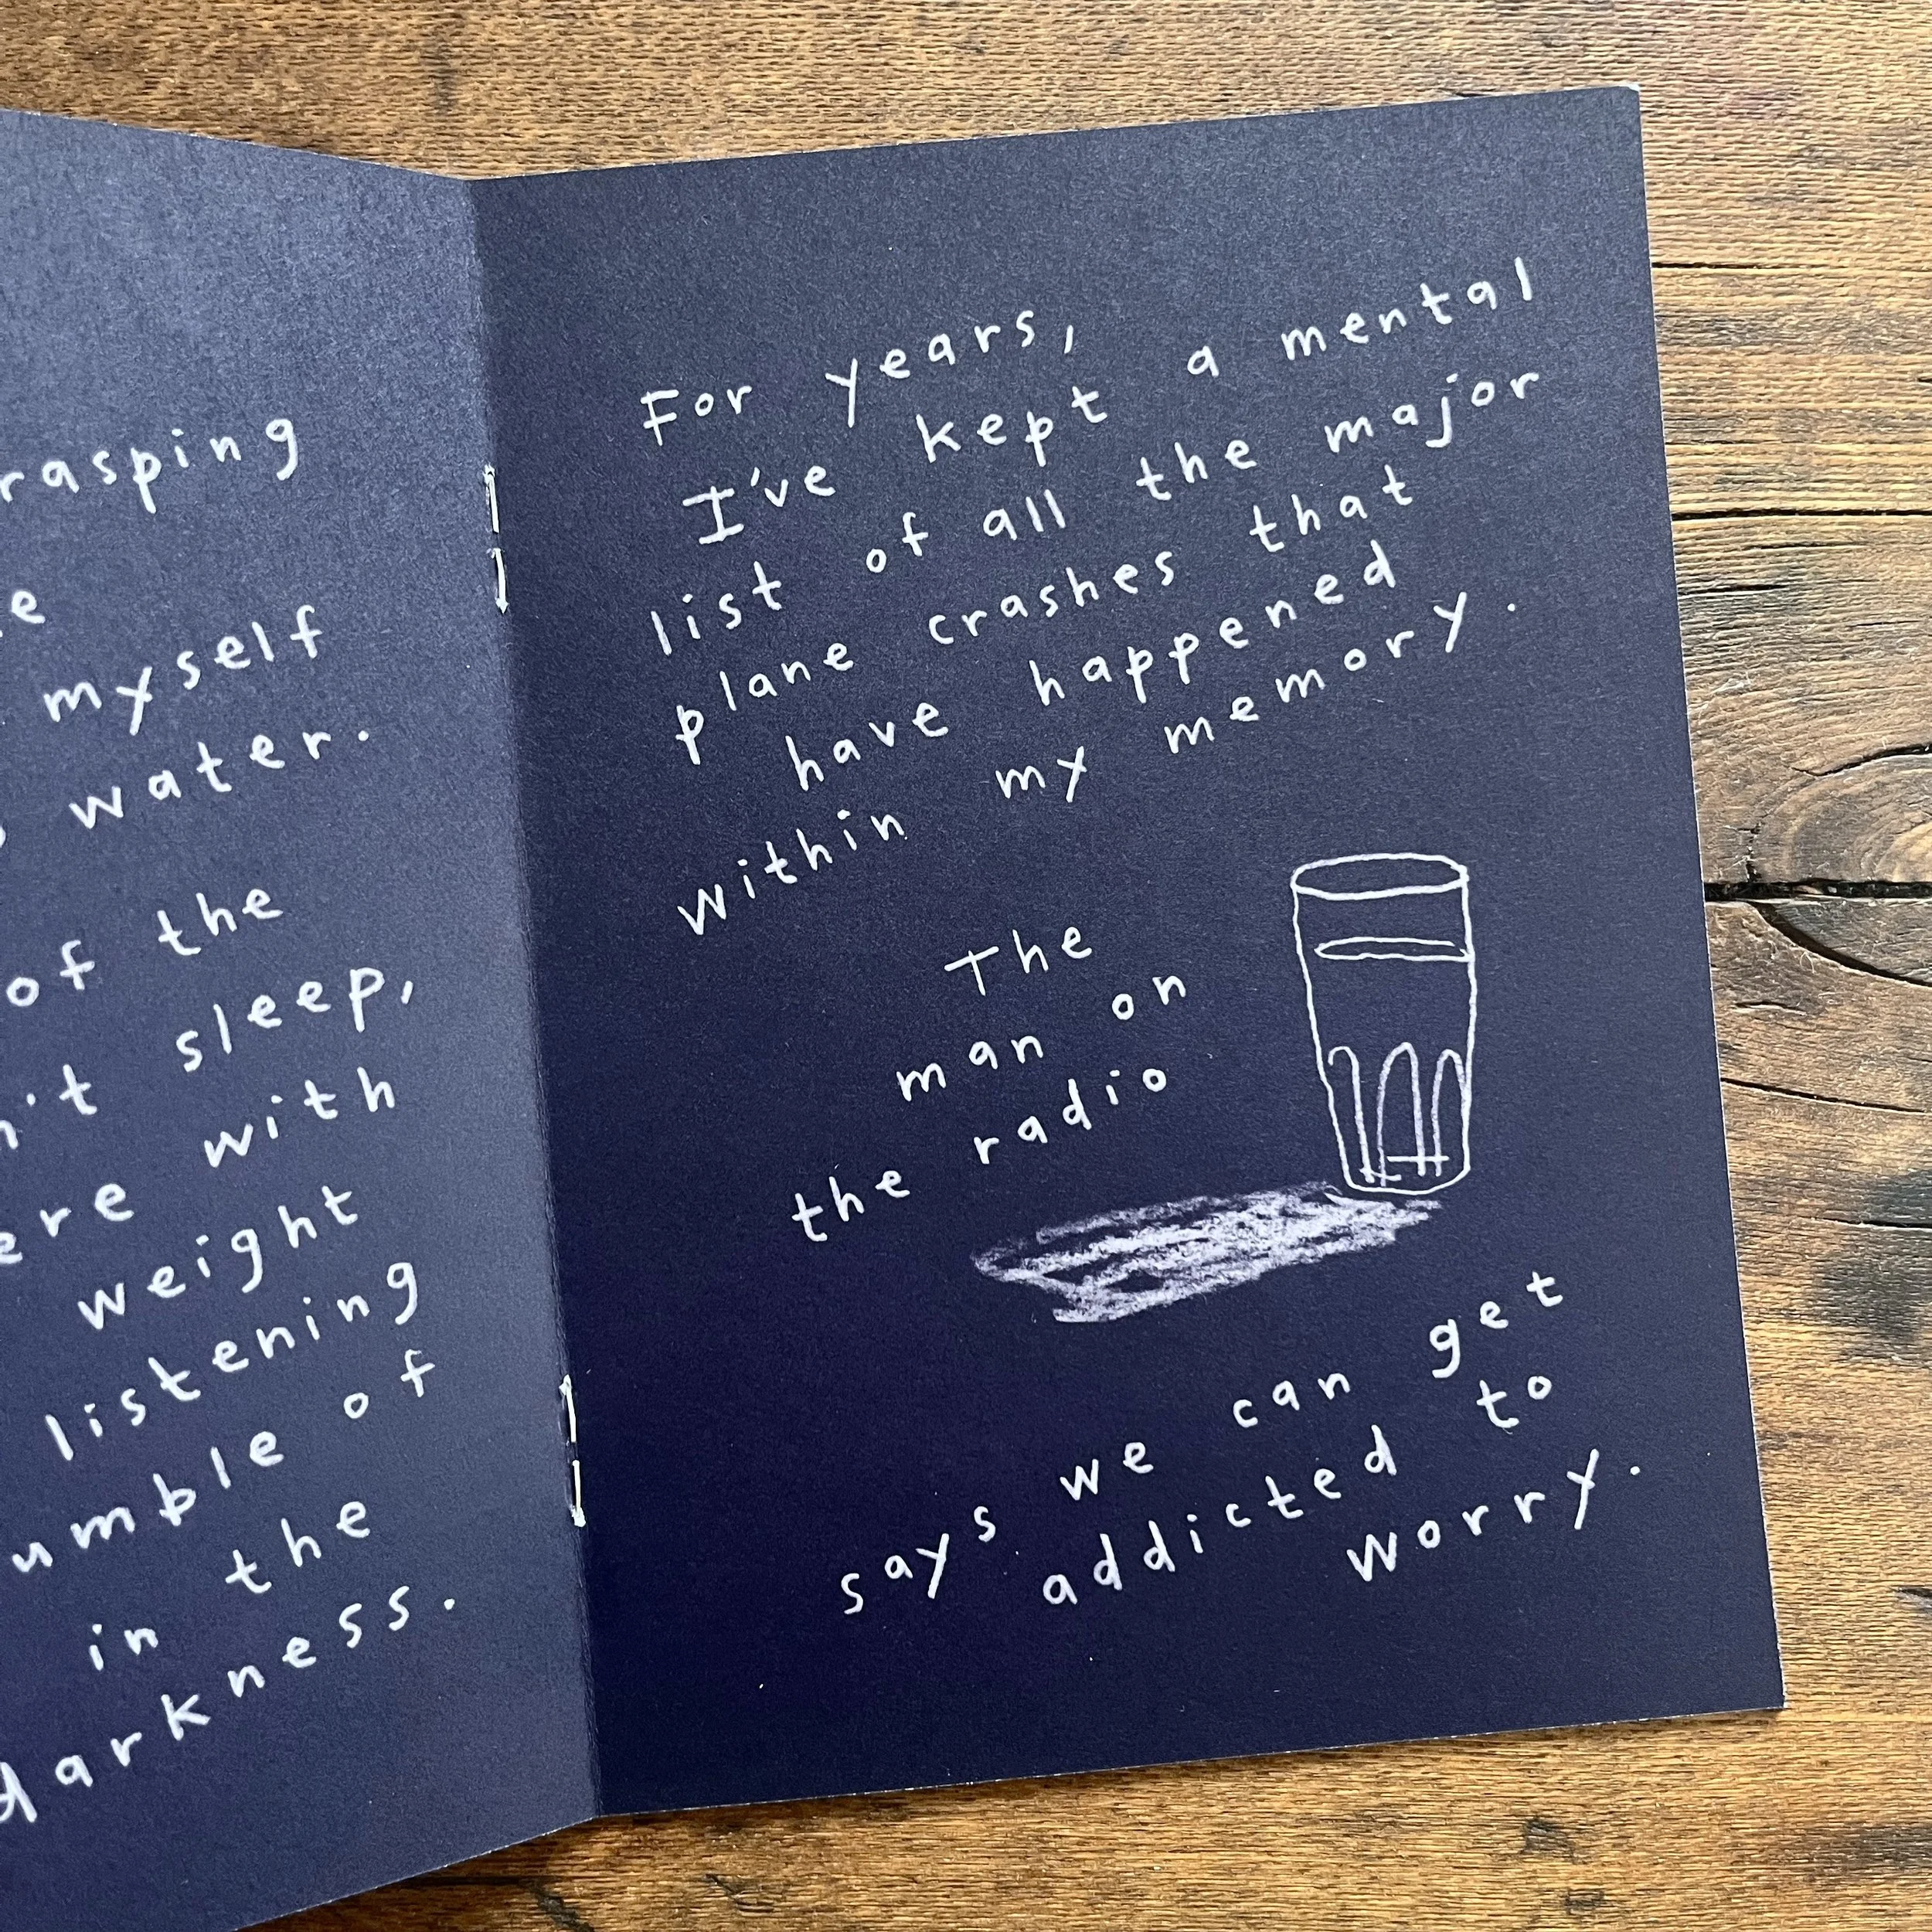 myself
water.
of the
sleep,
with
weight
listening
of
in the
darkness.
For years,
I've kept a mental
list of all the major
plane crashes that
have happened
within my memory.
The
man on
the radio
says we can get
addicted to
worry.